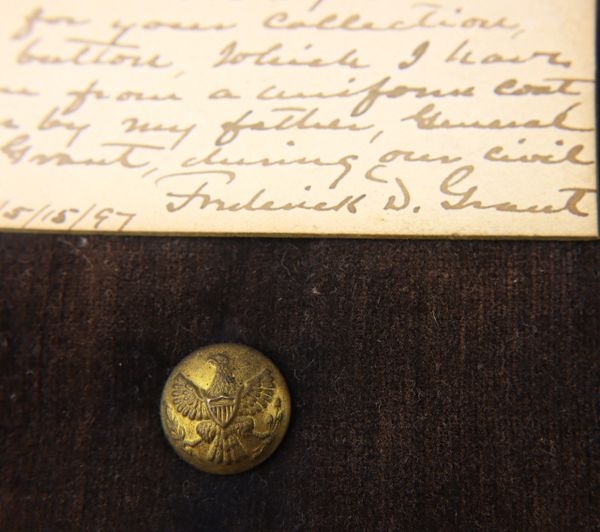 for your collection,
button, which I have
from a uniform coat
by my father, General
Grant, during our civil
Frederick D. Grant
5/15/97